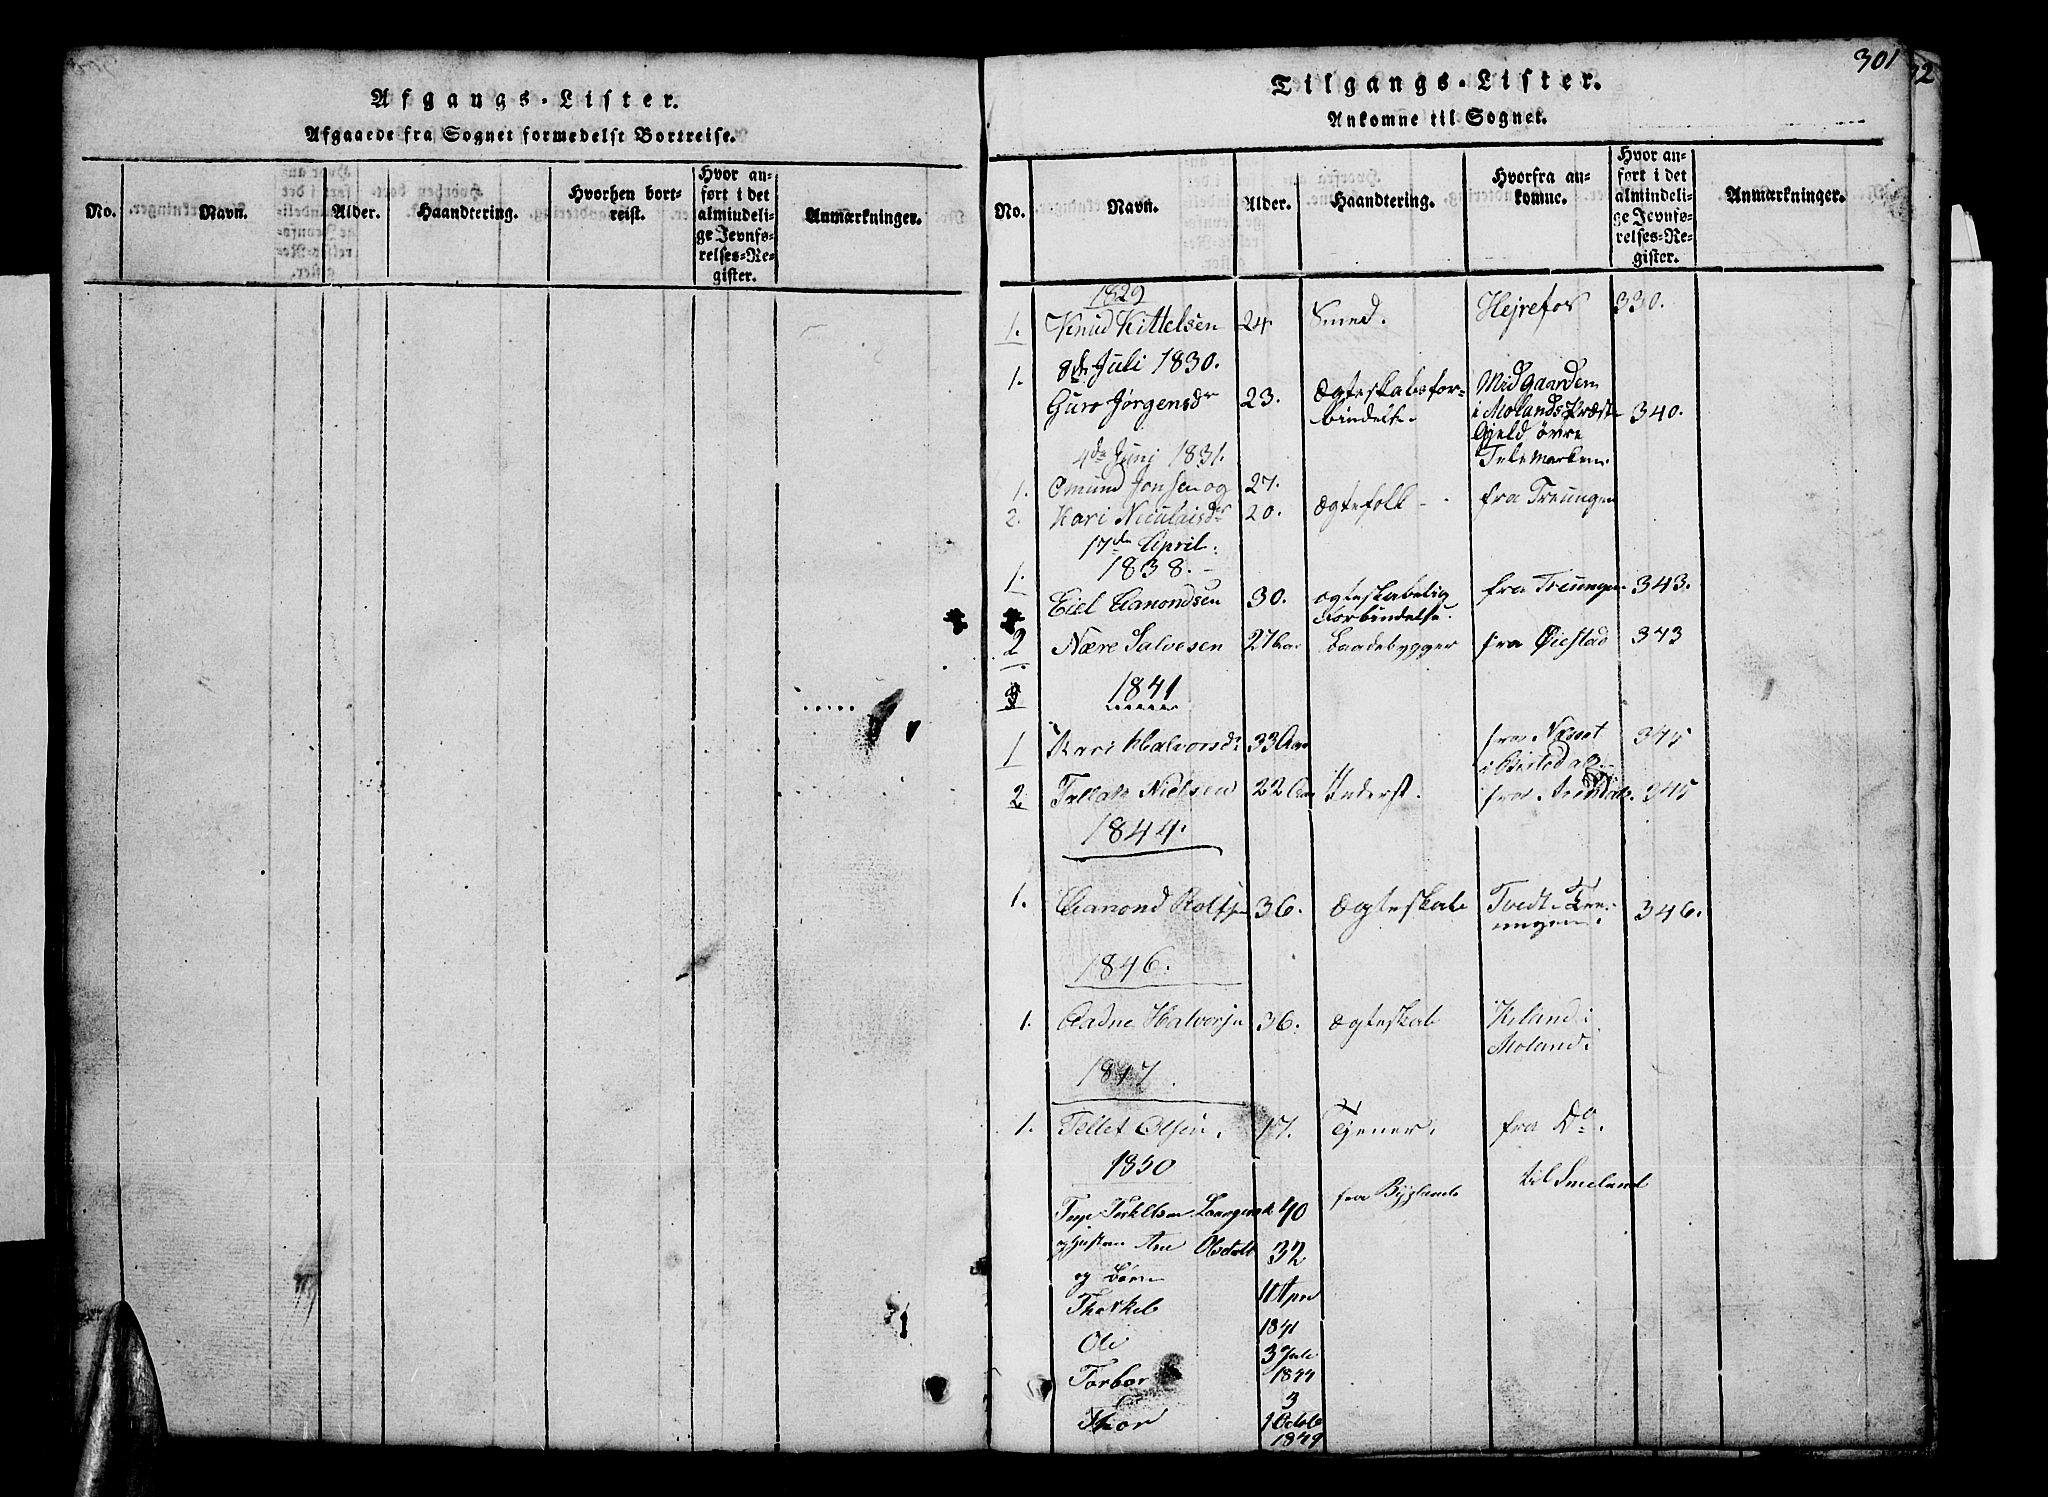 Afgangs-Lister.
Afgaaede fra Sognet formedelst Bortreise.
No. Navn. Alder. Haandtering. Hvorhen bort-reist. Hvor an-ført i det almindeli-ge Jevnfø-relses-Re-gister. Anmærkninger.
301
Tilgangs-Lister.
Ankomne til Sognet.
No. Navn. Alder. Haandtering. Hvorfra an-komne. Hvor an-ført i det almindeli-ge Jevnfø-relses-Re-gister. Anmærkninger.
1829
1. Knud Kittelsen 24 Smed. Hejrefos 330.
8de Juli 1830.
1. Guro Jørgensdr 23. Ægteskabsfor-bindelse. Midgaarden
i Molands Præste- 340.
Gjeld øvre
Telemarken.
4de Juni 1831.
1. Omund Jonsen og 27.
2. Kari Niculaisdr 20. Ægtefolk - fra Treungen
17de April.
1838.
1. Eiel Aamondsen 30. ægteskabelig Forbindelse. fra Treungen 343.
2 Nære Salvesen 27 Aar Baadebygger fra Øiestad 343
3 1841
1 Kari Halvorsdr 33 Aar fra Næset 345
2 Tellak Nielsen 22 Aar Underst. fra Arendal. 345
1844.
1. Aamond Rolfsen 36. Ægteskab Tvedt i Tre-ungen. 346.
1846.
1. Aadne Halvorsen 36. Ægteskab
Moland.
1847.
1. Tellef Olsen. 17. Tjener. fra Do.
1850
Terkelsen 40 fra Bygland til Smeland
32
og Børn
Thorkel 11 Apr 1841
Ole 3 Juli 1844
Torbor 3
Thor 1 Octob 1849